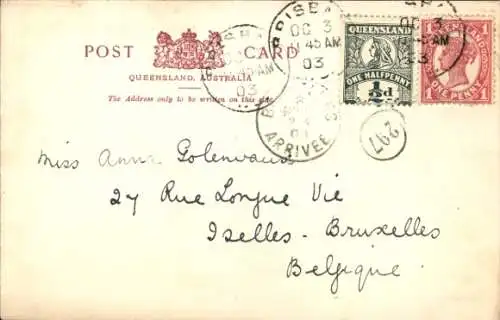 POST CARD
QUEENSLAND, AUSTRALIA
The Address only to be written on this side.
BRISBANE
OC 3
45 AM
03
QUEENSLAND
ONE HALFPENNY
½d
1 1
ONE PENNY
ARRIVEE
297
Miss Anna
27 Rue Longue Vie
Ixelles - Bruxelles
Belgique.